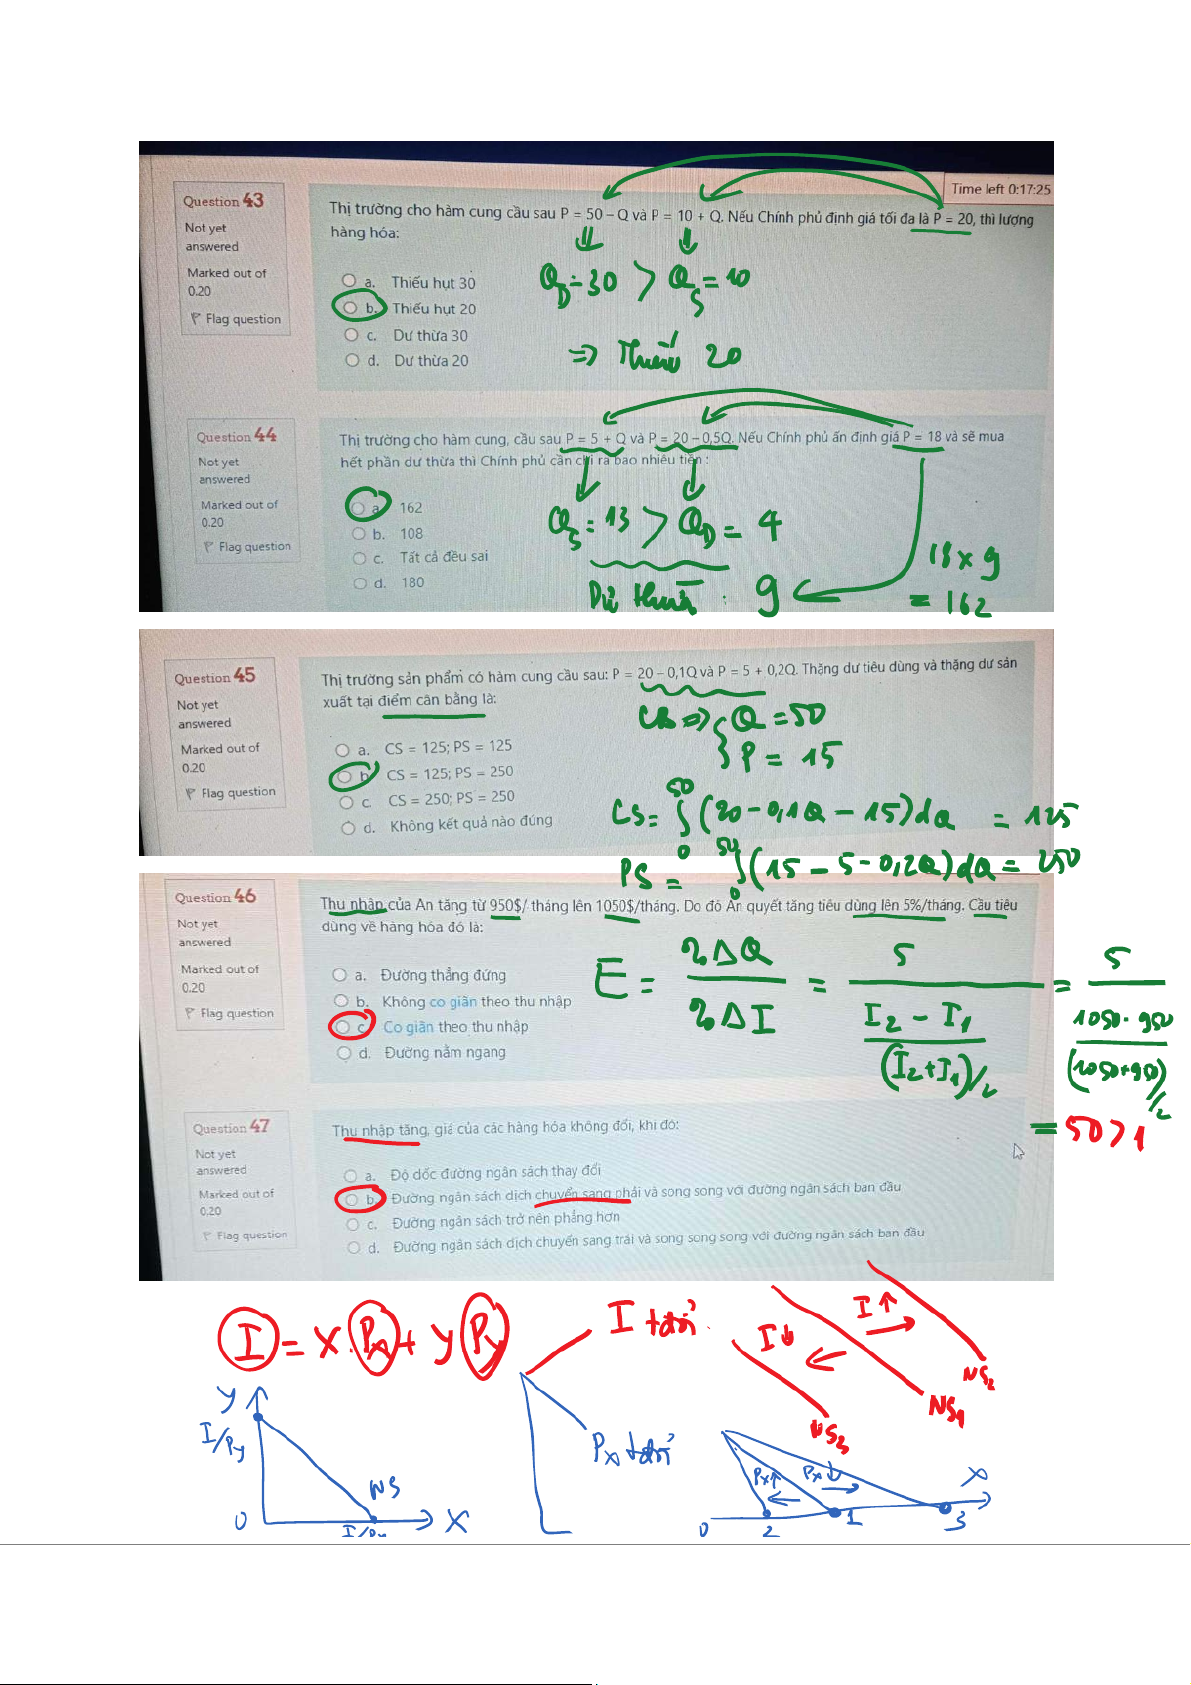 Time left 0:17:25
Question 43
Not yet
answered
Marked out of
0.20
Flag question
Thị trường cho hàm cung cầu sau P = 50 – Q và P = 10 + Q. Nếu Chính phủ định giá tối đa là P = 20, thì lượng
hàng hóa:
a. Thiếu hụt 30
b. Thiếu hụt 20
c. Dư thừa 30
d. Dư thừa 20
Q_D = 30 > Q_S = 10
=> Thiếu 20
Question 44
Not yet
answered
Marked out of
0.20
Flag question
Thị trường cho hàm cung, cầu sau P = 5 + Q và P = 20 – 0,5Q. Nếu Chính phủ ấn định giá P = 18 và sẽ mua
hết phần dư thừa thì Chính phủ cần chi ra bao nhiêu tiền :
a. 162
b. 108
c. Tất cả đều sai
d. 180
Q_S = 13 > Q_D = 4
Dư thừa : 9
18 x 9
= 162
Question 45
Not yet
answered
Marked out of
0.20
Flag question
Thị trường sản phẩm có hàm cung cầu sau: P = 20 – 0,1Q và P = 5 + 0,2Q. Thặng dư tiêu dùng và thặng dư sản
xuất tại điểm cân bằng là:
a. CS = 125; PS = 125
b. CS = 125; PS = 250
c. CS = 250; PS = 250
d. Không kết quả nào đúng
CB => { Q = 50
P = 15
CS = ∫ 0 50 (20 - 0,1Q - 15)dQ = 125
PS = ∫ 0 50 (15 - 5 - 0,2Q)dQ = 250
Question 46
Not yet
answered
Marked out of
0.20
Flag question
Thu nhập của An tăng từ 950$/ tháng lên 1050$/tháng. Do đó An quyết tăng tiêu dùng lên 5%/tháng. Cầu tiêu
dùng về hàng hóa đó là:
a. Đường thẳng đứng
b. Không co giãn theo thu nhập
c. Co giãn theo thu nhập
d. Đường nằm ngang
E = %ΔQ / %ΔI = 5 / ((I2 - I1) / ((I2+I1)/2)) = 5 / ((1050 - 950) / ((1050+950)/2))
= 50 > 1
Question 47
Not yet
answered
Marked out of
0.20
Flag question
Thu nhập tăng, giá của các hàng hóa không đổi, khi đó:
a. Độ dốc đường ngân sách thay đổi
b. Đường ngân sách dịch chuyển sang phải và song song với đường ngân sách ban đầu
c. Đường ngân sách trở nên phẳng hơn
d. Đường ngân sách dịch chuyển sang trái và song song song với đường ngân sách ban đầu
I = X.Px + Y Py
I tđổi
I↓
I↑
NS2
NS1
NS3
Y
I/Py
NS
0
I/Px
X
Px tđổi
Px↑
Px↓
X
0
2
1
3